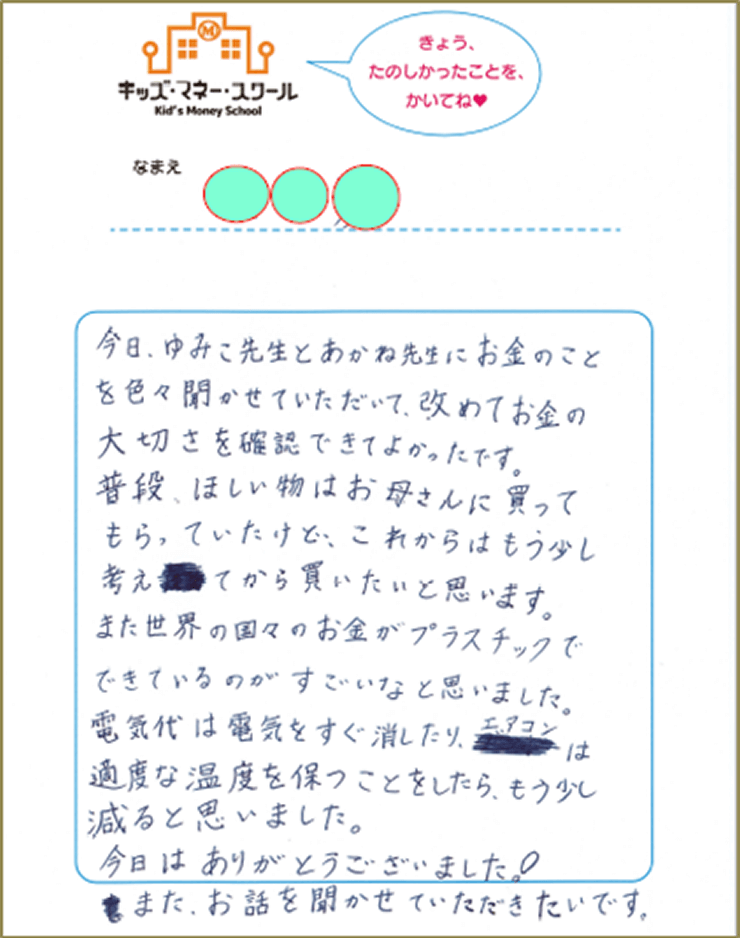 キッズ・マネー・スクール
Kid's Money School
きょう、
たのしかったことを、
かいてね♥
なまえ
今日、ゆみこ先生とあかね先生にお金のこと
を色々聞かせていただいて、改めてお金の
大切さを確認できてよかったです。
普段、ほしい物はお母さんに買って
もらっていたけど、これからはもう少し
考えてから買いたいと思います。
また世界の国々のお金がプラスチックで
できているのがすごいなと思いました。
電気代は電気をすぐ消したり、エアコンは
適度な温度を保つことをしたら、もう少し
減ると思いました。
今日はありがとうございました。!
また、お話を聞かせていただきたいです。